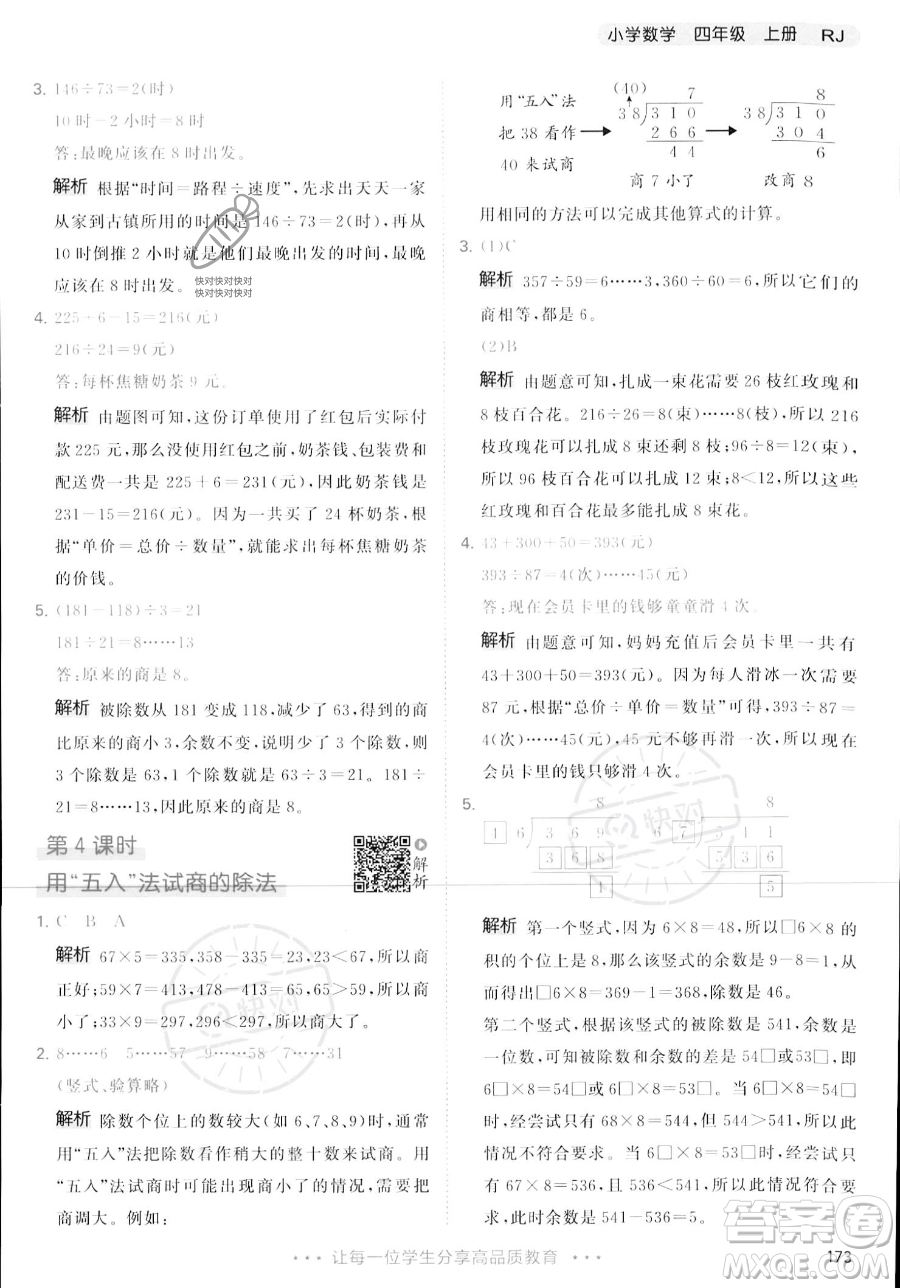 小学数学 四年级 上册 RJ
3. 146÷73=2(时)
10 时-2 小时=8 时
答:最晚应该在 8 时出发。
解析 根据“时间=路程÷速度”,先求出天天一家
从家到古镇所用的时间是 146÷73=2(时),再从
10 时倒推 2 小时就是他们最晚出发的时间,最晚
应该在 8 时出发。
快对快对快对
快对快对快对
4. 225+6-15=216(元)
216÷24=9(元)
答:每杯焦糖奶茶 9 元。
解析 由题图可知,这份订单使用了红包后实际付
款 225 元,那么没使用红包之前,奶茶钱、包装费和
配送费一共是 225+6=231(元),因此奶茶钱是
231-15=216(元)。因为一共买了 24 杯奶茶,根
据“单价=总价÷数量”,就能求出每杯焦糖奶茶
的价钱。
5. (181-118)÷3=21
181÷21=8……13
答:原来的商是 8。
解析 被除数从 181 变成 118,减少了 63,得到的商
比原来的商小 3,余数不变,说明少了 3 个除数,则
3 个除数是 63,1 个除数就是 63÷3=21。181÷
21=8……13,因此原来的商是 8。
第 4 课时
用“五入”法试商的除法
解析
1. C B A
解析 67×5=335,335<339,339-335<67,所以商
正好;59×7=413,478-413=65,65>59,所以商
小了;33×9=297,296<297,所以商大了。
2. 8……6 5……57 9……58 7……31
(竖式、验算略)
解析 除数个位上的数较大(如 6,7,8,9)时,我们常
用“五入”法把除数看作稍大的整十数来试商。用
“五入”法试商时可能出现商小了的情况,需要把
商调大。例如:
用“五入”法
把 38 看作
40 来试商
(40) 7
38 310
266
44
商 7 小了
8
38 310
304
6
改商 8
用相同的方法可以完成其他算式的计算。
3. (1)C
解析 357÷59=6……3,360÷60=6,所以它们的
商相等,都是 6。
(2)B
解析 由题意可知,扎成一束花需要 26 枝红玫瑰和
8 枝百合花。216÷26=8(束)……8(枝),所以 216
枝玫瑰花可以扎成 8 束还剩 8 枝;96÷8=12(束),
所以 96 枝百合花可以扎成 12 束;8<12,所以这些
红玫瑰和百合花最多能扎成 8 束花。
4. 43+300+50=393(元)
393÷87=4(次)……45(元)
答:现在会员卡里的钱够童童滑 4 次。
解析 由题意可知,妈妈充值后会员卡里一共有
43+300+50=393(元)。因为每人滑冰一次需要
87 元,根据“总价÷单价=数量”可得,393÷87=
4(次)……45(元),45 元不够再滑一次,所以现在
会员卡里的钱只够滑 4 次。
5. 8 8
16 369 67 541
368 536
1 5
解析 第一个竖式,因为 6×8=48,所以□6×8 的
积的个位上是 8,那么该竖式的余数是 9-8=1,因
此得出□6×8=368,所以除数是 46。
第二个竖式,根据该竖式的被除数是 541,余数是
一位数,可知被除数和余数的差是 54□或 53□,即
6□×8=54□或 6□×8=53□,所以 6□×8=54□
或 6□×8=53□。经尝试只有 68×8=544 或
67×8=536 符合,但是 544>541,所以这种情况不
符合要求。所以只有 67×8=536 这种情况符合要
求,所以余数是 541-536=5。
快对
快对
答案卷
MXQE.COM
让每一位学生分享高品质教育
173